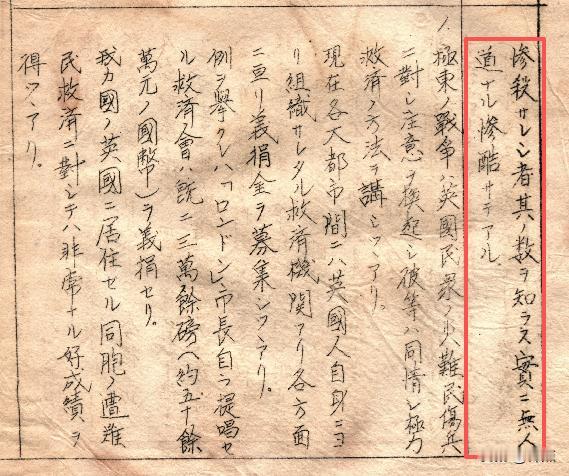 惨殺サレシ者其ノ数ヲ知ラス實ニ無人
道ナル惨酷サテアル
極東ノ戦争ハ英國民衆ノ災難民傷兵
ニ對シ注意ヲ換起シ彼等ハ同情シ極力
救済ノ方法ヲ講シツヽアリ。
現在各大都市間ニハ英國人自身ニヨ
リ組織サレタル救済機関アリ各方面
ニ亘リ義捐金ヲ募集シツヽアリ。
例ヲ擧クレハ「ロンドン」市長自ラ提唱セ
ル救済ノ會ハ既ニ三萬餘磅(約五十餘
萬元ノ國幣)ヲ義捐セリ。
我カ國ノ英國ニ居住セル同胞ノ遭難
民救済ニ對シテハ非常ナル好成績ヲ
得ツヽアリ。